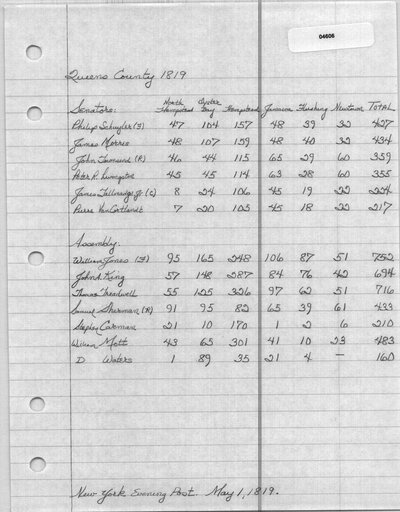 04606
Queens County 1819
Senators: North Hempstead Oyster Bay Hempstead Jamaica Flushing Newtown TOTAL
Philip Schuyler (F) 47 104 157 48 39 32 427
James Morris 48 107 159 48 40 32 434
John Townsend (R) 46 44 115 65 29 60 359
Peter R. Livingston 45 45 114 63 28 60 355
James Tallmadge Jr (C) 8 24 106 45 19 22 224
Pierre VanCortlandt 7 20 105 45 18 22 217
Assembly:
William Jones (F) 95 165 248 106 87 51 752
John A King 57 148 287 84 76 42 694
Thomas Treadwell 55 125 326 97 62 51 716
Samuel Sherman (R) 91 95 82 65 39 61 433
Stephen Carman 21 10 170 1 2 6 210
William Mott 43 65 301 41 10 23 483
D Waters 1 89 35 21 4 — 160
New York Evening Post. May 1, 1819.